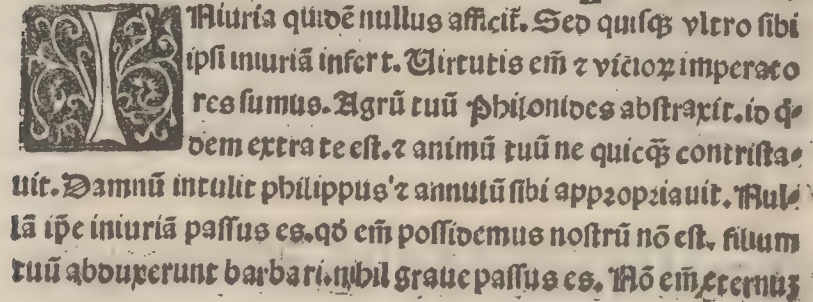 INiuria quidē nullus afficit̄. Sed quiſqꝫ vltro ſibi
ipſi iniuriā infert. Uirtutis em̄ ⁊ vicioꝝ imperato
res ſumus. Agrū tuū Philonides abſtraxit. id q̇
dem extra te eſt. ⁊ animū tuū ne quicqꝫ contriſta⸗
uit. Damnū intulit philippus ⁊ annulū ſibi appꝛopꝛiauit. Nul⸗
lā ip̄e iniuriā paſſus es. qd̄ em̄ poſſidemus noſtrū nō eſt. filium
tuū abduxerunt barbari. nihil graue paſſus es. Nō em̄ eternuꝫ